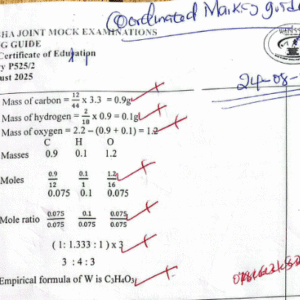 Coordinated Marking guide
HA JOINT MOCK EXAMINATIONS
G GUIDE
Certificate of Education
y P525/2
ust 2025
24-08-
Mass of carbon = 12/44 x 3.3 = 0.9g
Mass of hydrogen = 2/18 x 0.9 = 0.1g
Mass of oxygen = 2.2 – (0.9 + 0.1) = 1.2
C H O
Masses 0.9 0.1 1.2
Moles 0.9/12 0.1/1 1.2/16
0.075 0.1 0.075
Mole ratio 0.075/0.075 0.1/0.075 0.075/0.075
(1: 1.333 : 1) x 3
3 : 4 : 3
Empirical formula of W is C₃H₄O₃